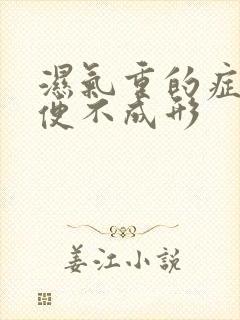 濕氣重的症
便不成形
姜江小說